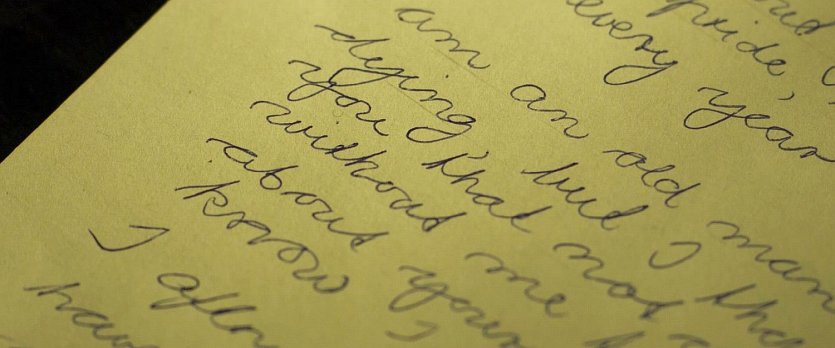 and
pride,
every year
am an old man
dying, but I
you that not
without me
about your
know I
I
have